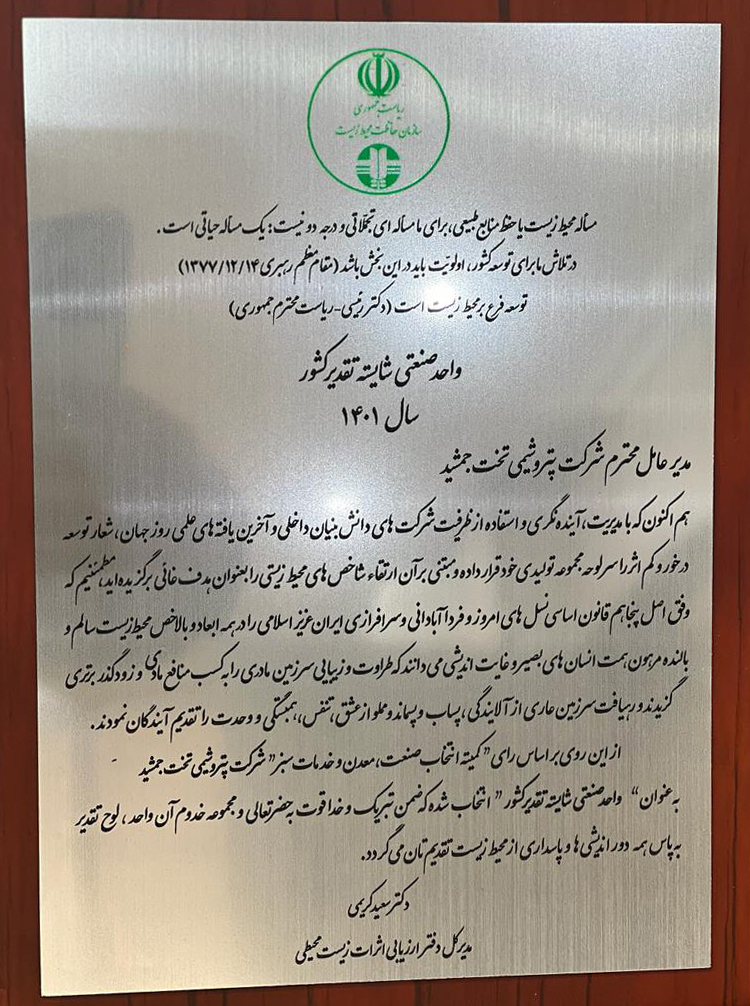 ریاست جمهوری
سازمان حفاظت محیط زیست
مسأله محیط زیست یا حفظ منابع طبیعی، برای ما مسأله ای تجملاتی و درجه دو نیست: یک مسأله حیاتی است.
در تلاش ما برای توسعه کشور، اولویت باید در این بخش باشد (مقام معظم رهبری ۱۳۷۷/۱۲/۱۴)
توسعه فرع بر محیط زیست است (دکتر رئیسی-ریاست محترم جمهوری)
واحد صنعتی شایسته تقدیر کشور
سال ۱۴۰۱
مدیر عامل محترم شرکت پتروشیمی تخت جمشید
هم اکنون که با مدیریت، آینده نگری و استفاده از ظرفیت شرکت های دانش بنیان داخلی و آخرین یافته های علمی روز جهان، شعار توسعه
در خور و کم اثر را سرلوحه مجموعه تولیدی خود قرار داده و مبتنی بر آن ارتقاء شاخص های محیط زیستی را بعنوان هدف غائی برگزیده اید، مطمئنیم که
وفق اصل پنجاهم قانون اساسی نسل های امروز و فردا آبادانی و سرافرازی ایران عزیز اسلامی را در همه ابعاد و بالاخص محیط زیست سالم و
بالنده مرهون همت انسان های بصیر و غایت اندیشی می دانند که طراوت و زیبایی سرزمین مادری را به کسب منافع مادی و زودگذر برتری
گزیدند و رهیافت سرزمین عاری از آلایندگی، پساب و پسماند و مملو از عشق، تنفس، همبستگی و وحدت را تقدیم آیندگان نمودند.
از این روی بر اساس رای "کمیته انتخاب صنعت، معدن و خدمات سبز" شرکت پتروشیمی تخت جمشید
به عنوان "واحد صنعتی شایسته تقدیر کشور" انتخاب شده که ضمن تبریک و خدا قوت به حضرتعالی و مجموعه خدوم آن واحد، لوح تقدیر
به پاس همه دور اندیشی ها و پاسداری از محیط زیست تقدیم تان می گردد.
دکتر سعید کریمی
مدیرکل دفتر ارزیابی اثرات زیست محیطی